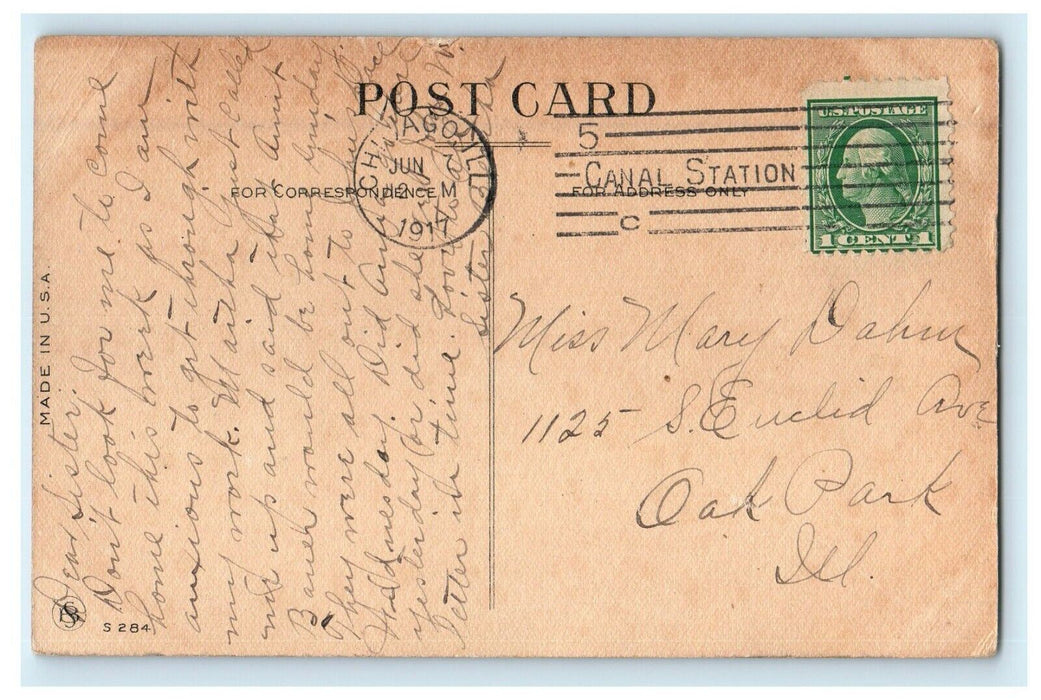 POST CARD
FOR CORRESPONDENCE
FOR ADDRESS ONLY
CHICAGO, ILL.
JUN 7
12 M
1917
5
CANAL STATION
C
U.S. POSTAGE
1 CENT 1
MADE IN U.S.A.
S 284
Dear Sister:
Don't look for me to come
home this week as I am
anxious to get through with
my work. Martha just called
me up and said that Aunt
Bauer would be home Sunday.
They were all out to
Wednesday. Did
yesterday or did she
letter in time. Love to
Sister
Miss Mary Dahm
1125 S. Euclid Ave
Oak Park
Ill